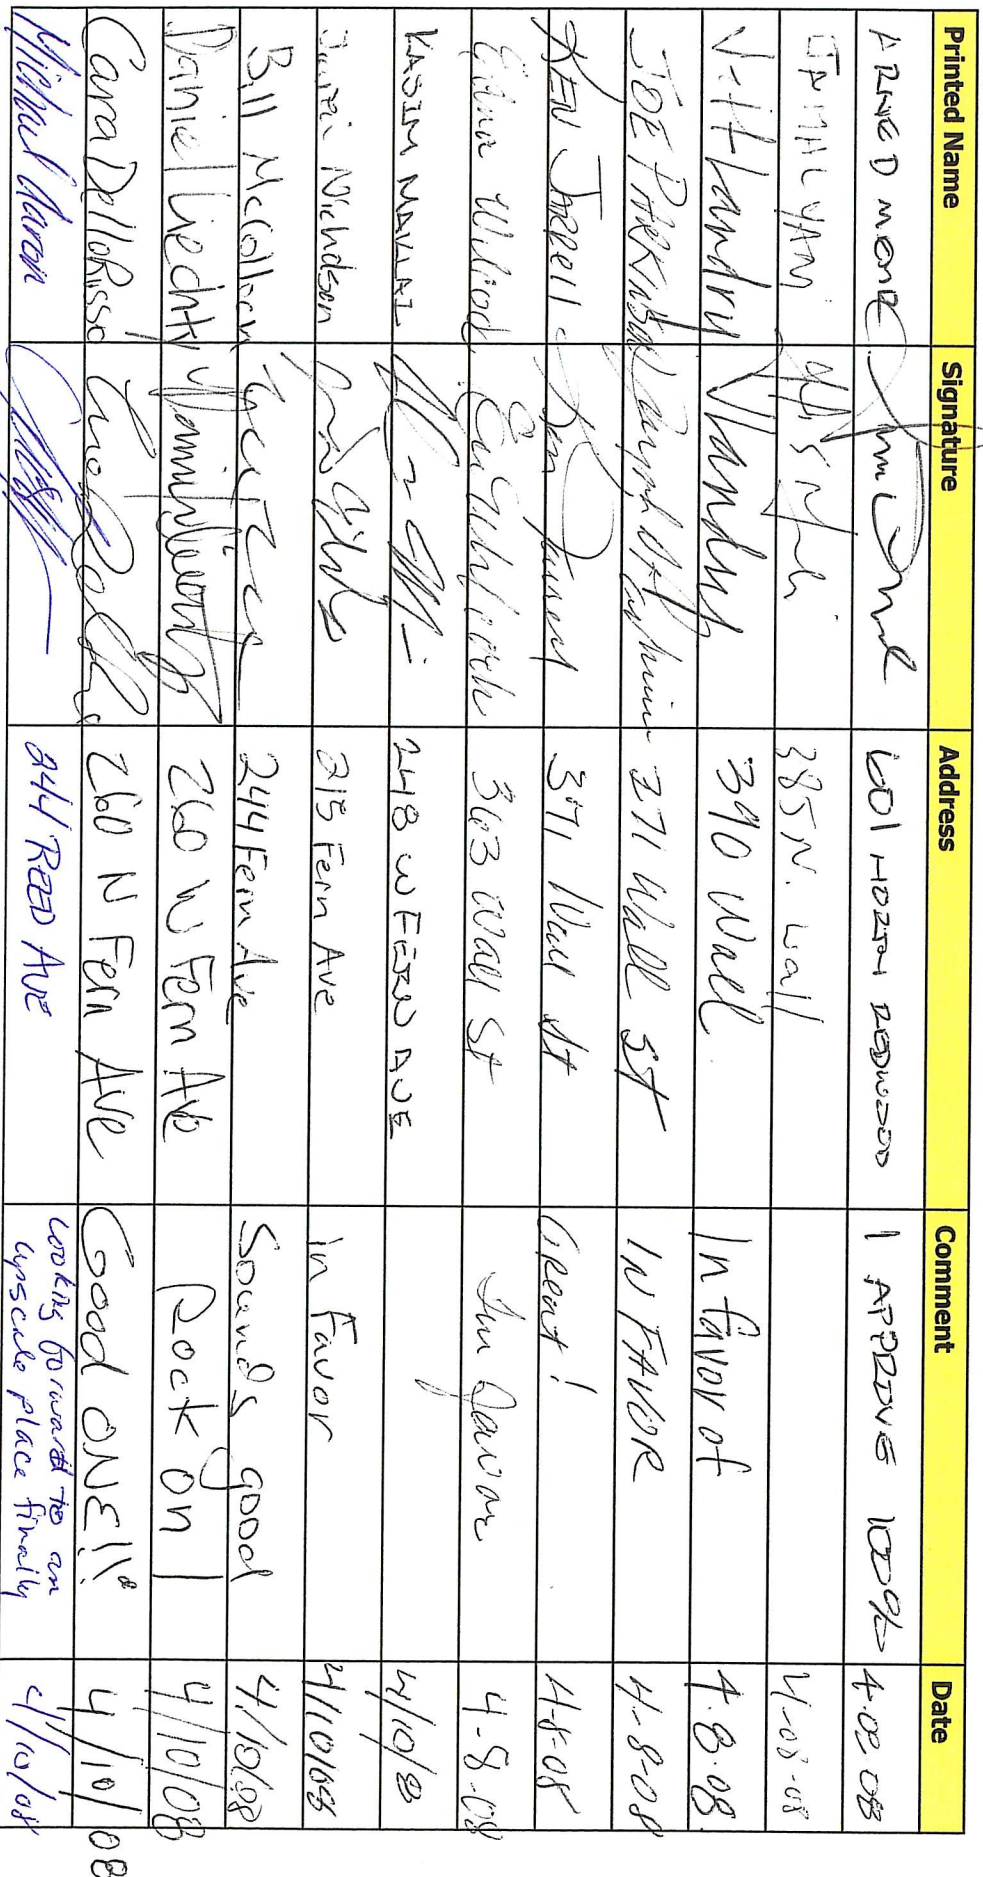 Printed Name Signature Address Comment Date
ARNE D MOORE 601 NORTH REDWOOD I APPROVE 100% 4.02.08
385 N. Wall 4-08-08
V Landry V Landry 390 Wall. In favor of 4.8.08.
JOE 271 Wall St IN FAVOR 4-8-08
KEN JARRELL 371 Wall St Great! 4-8-08
363 Wall St In favor 4-8-08
KASIM 248 W FERN AVE 4/10/8
Nicholson 215 Fern Ave in Favor 4/10/08
Bill McCollum 244 Fern Ave Sounds good 4/10/08
Daniel Liechty 260 W Fern Ave Rock on! 4/10/08
Cara DelloRusso 260 N Fern Ave Good ONE!! 4/10/08
Michael Aaron 244 REED AVE Looking forward to an
upscale place finally 4/10/08